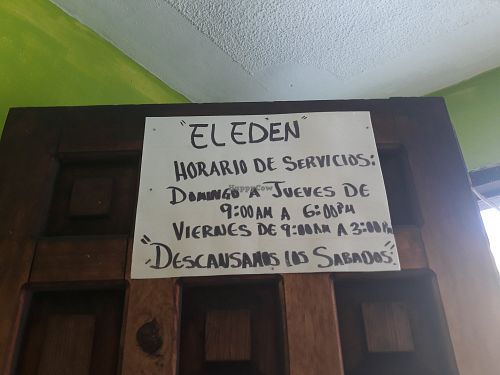 "EL EDEN"
HORARIO DE SERVICIOS:
DOMINGO A JUEVES DE
9:00AM A 6:00PM
VIERNES DE 9:00AM A 3:00PM
"DESCANSAMOS LOS SABADOS"
HappyCow